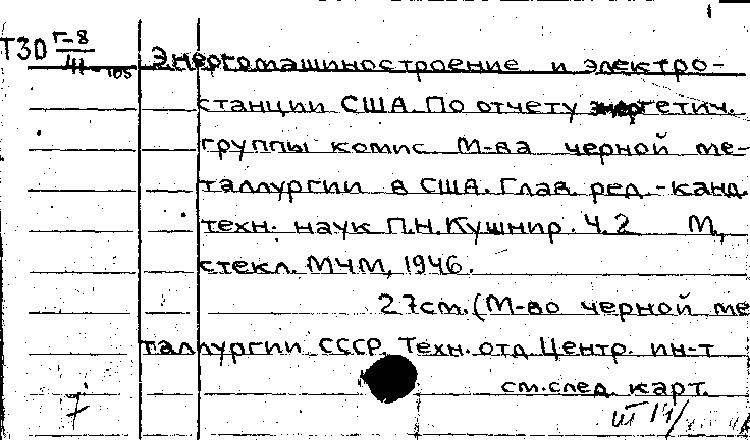 Т30 Г-8/41-105 Энергомашиностроение и электро-
станции США. По отчету энергетич.
группы комис. М-ва черной ме-
таллургии в США. Глав. ред. - канд.
техн. наук П.Н. Кушнир. Ч. 2 М,
стекл. МЧМ, 1946.
27см. (М-во черной ме
таллургии СССР. Техн. отд. Центр. ин-т
см. след. карт.
7